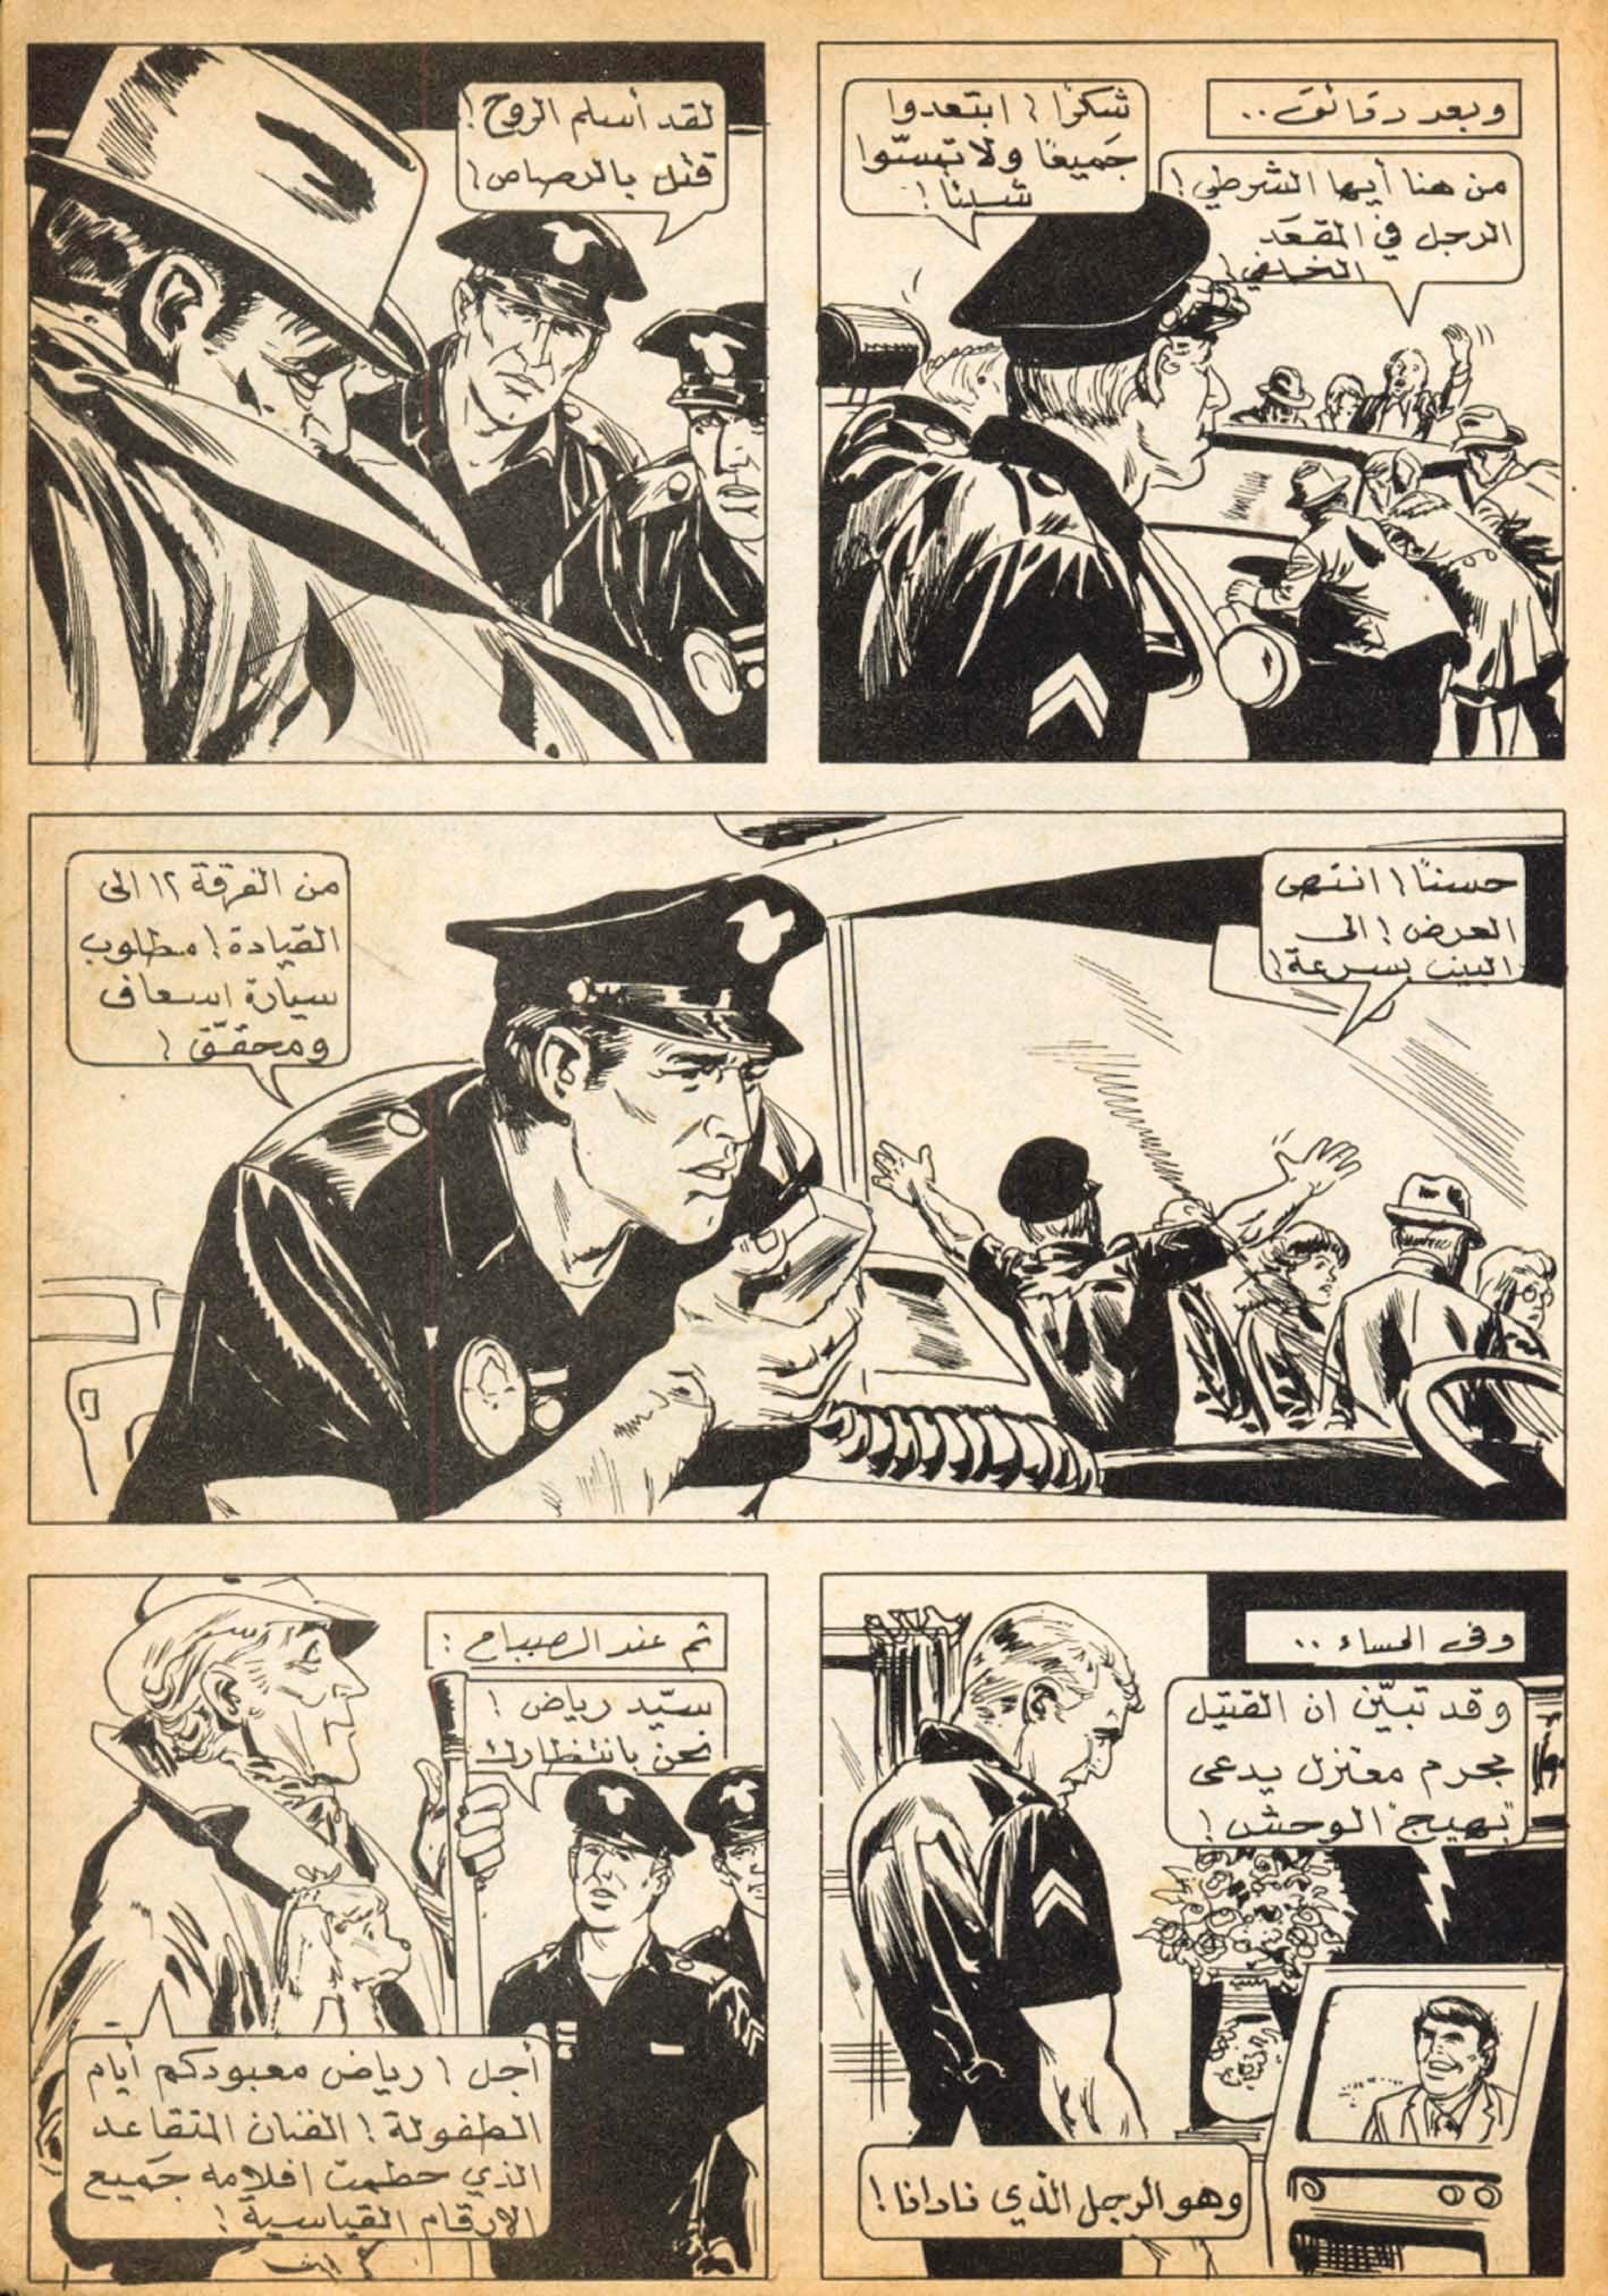 وبعد دقائق..
من هنا أيها الشرطي!
الرجل في المقعَد
الخلفي!
شكرًا! ابتعدوا
جَميعًا ولا تمسّوا
شيئًا!
لقد أسلم الروح!
قتل بالرصاص!
حسنًا! انتهى
العرض! الى
البيت بسرعة!
من الفرقة ١٢ الى
القيادة! مطلوب
سيارة اسعاف
ومحقّق!
وفى المساء..
وقد تبيّن ان القتيل
مجرم معتزل يدعى
"بهيج" الوحش!
وهو الرجل الذي نادانا!
ثم عند الصباح:
سيّد رياض!
نحن بانتظارك
أجل! رياض معبودكم أيام
الطفولة! الفنان المتقاعد
الذي حطمت افلامه جَميع
الارقام القياسية!